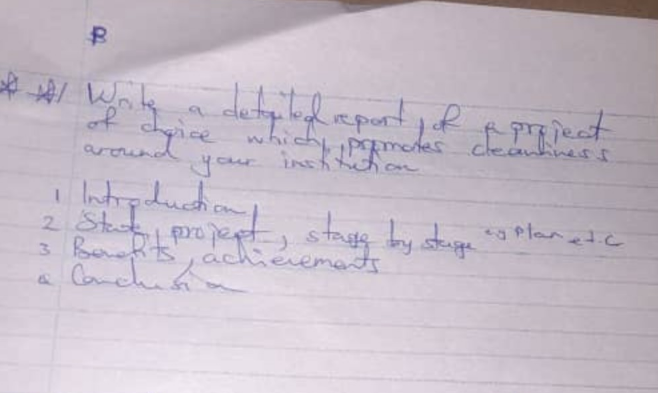 B
Write a detailed report, of a project
of choice which, promotes cleanliness
around your institution
1 Introduction
2 State, project, stage by stage eg plan e.t.c
3 Benefits, achievements
Conclusion